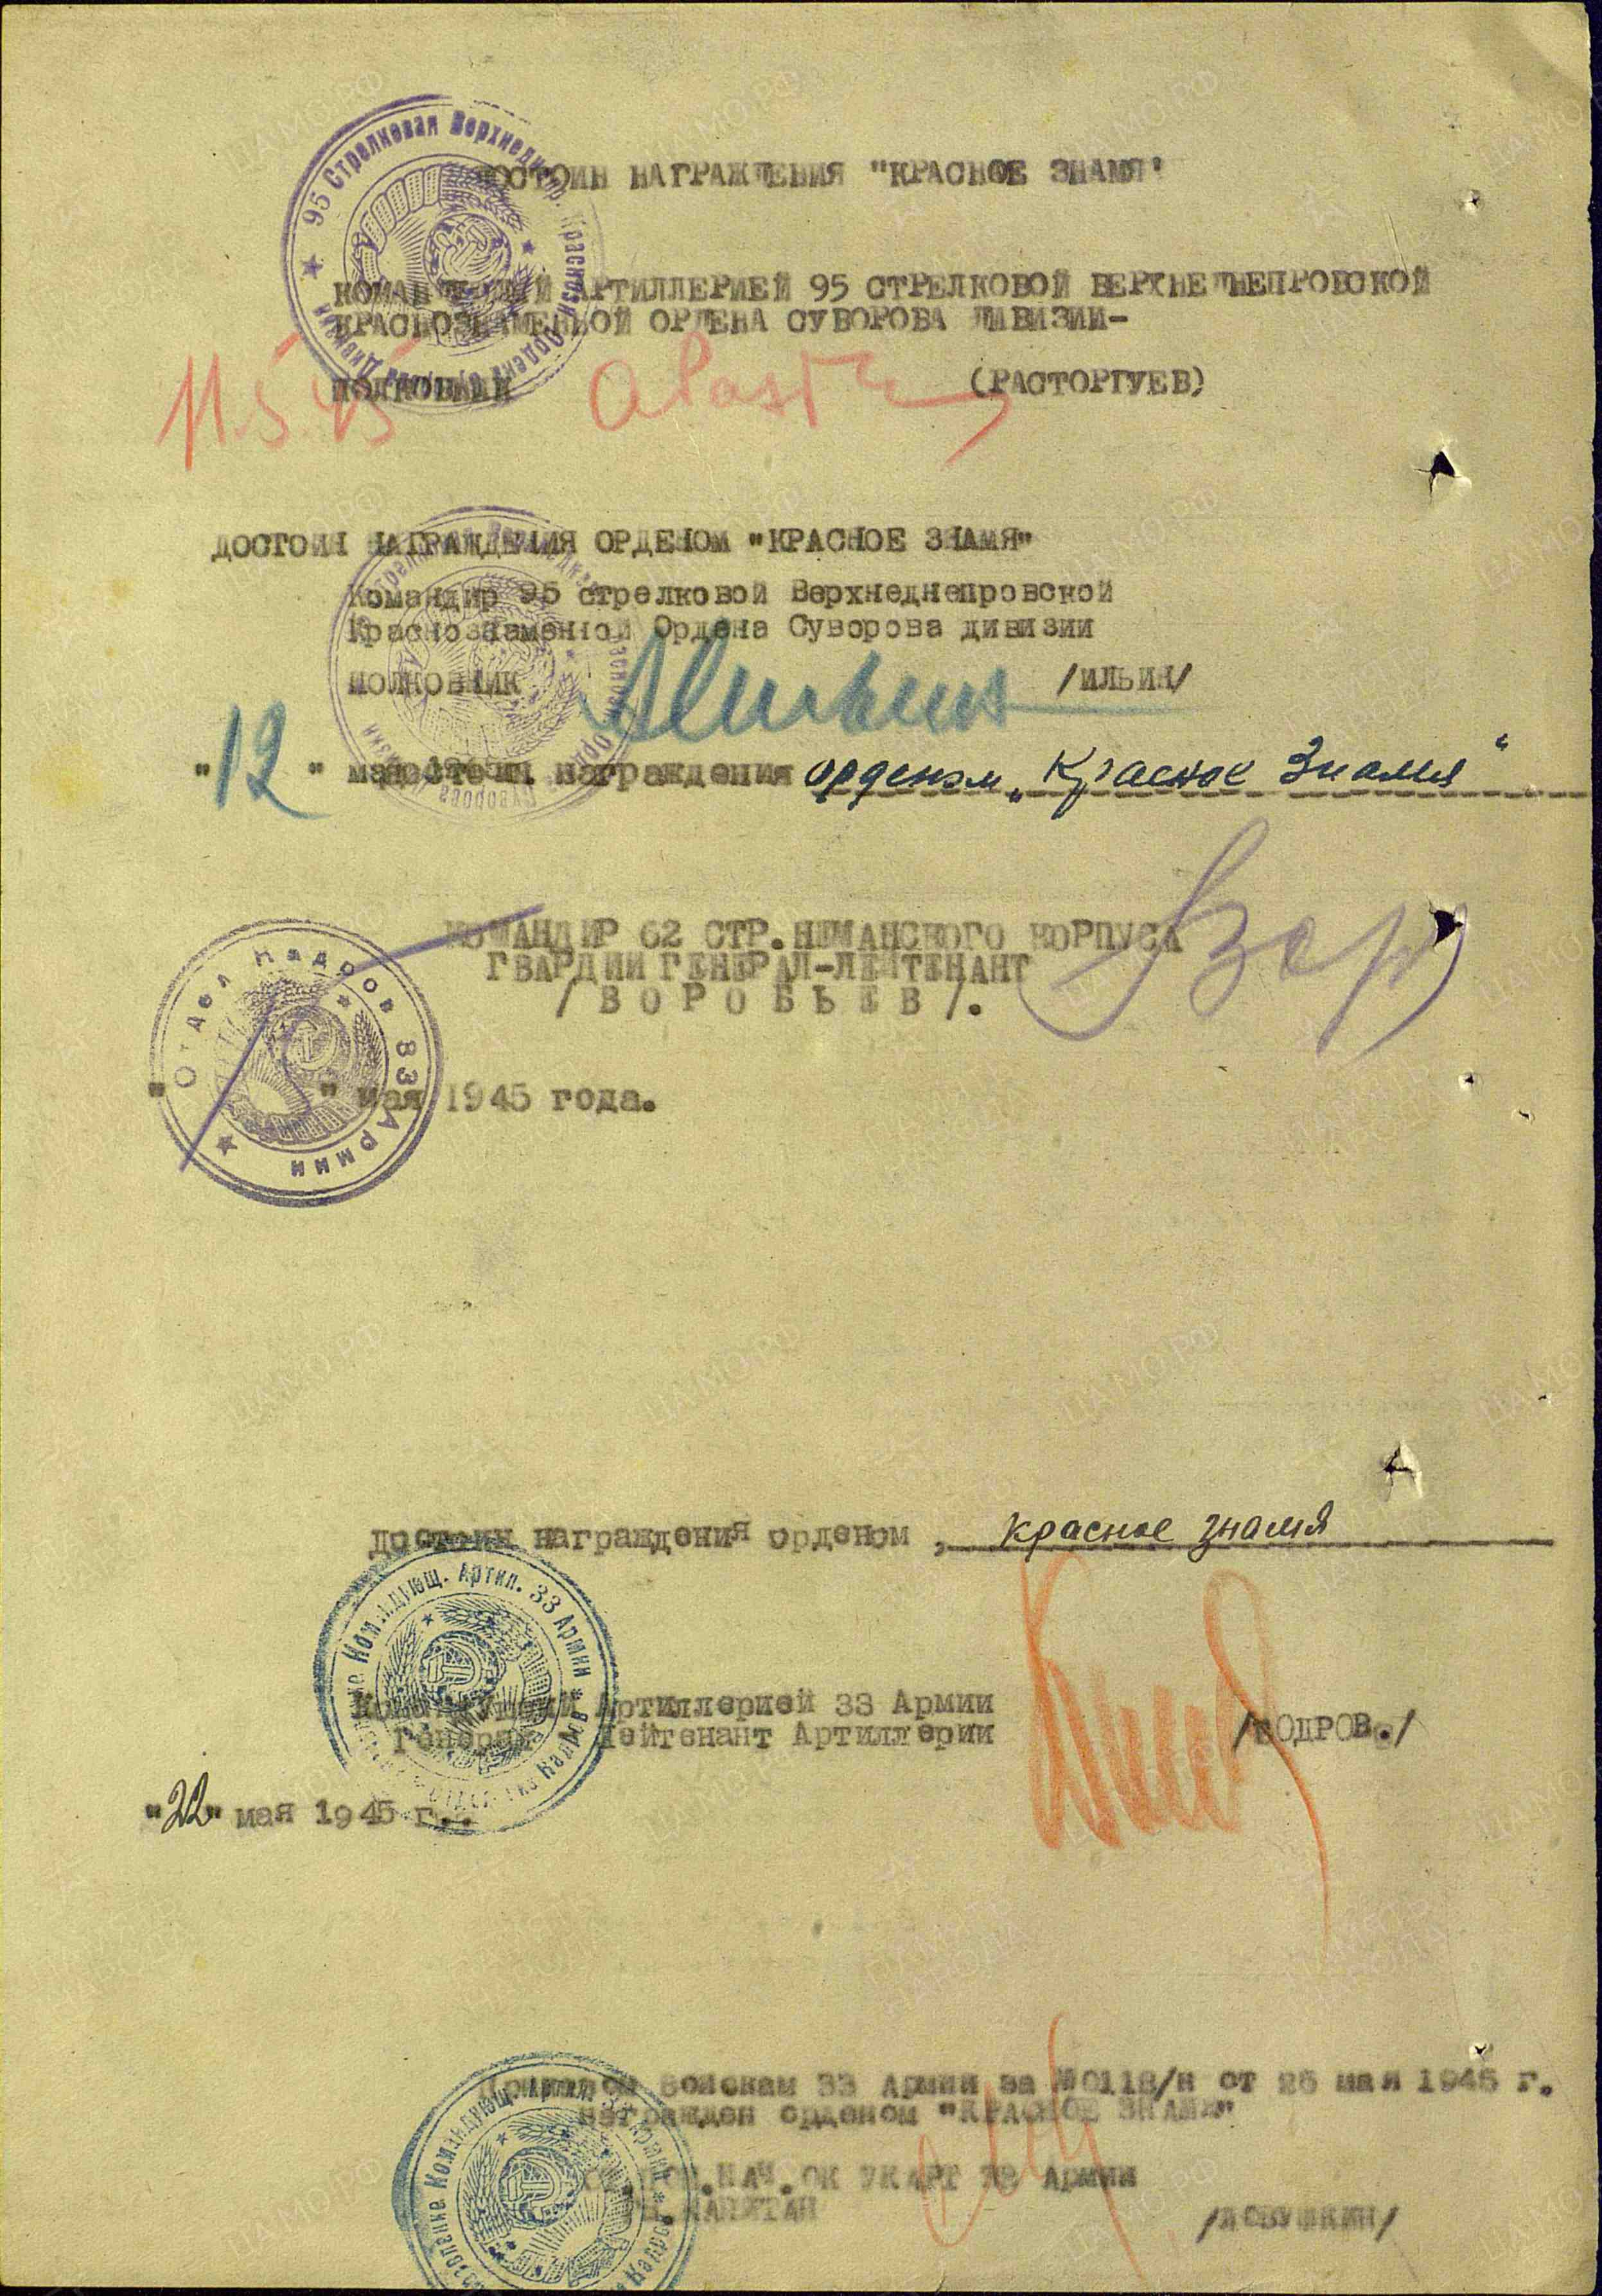 ДОСТОИН НАГРАЖДЕНИЯ "КРАСНОЕ ЗНАМЯ"
КОМАНДУЮЩИЙ АРТИЛЛЕРИЕЙ 95 СТРЕЛКОВОЙ ВЕРХНЕДНЕПРОВСКОЙ
КРАСНОЗНАМЕННОЙ ОРДЕНА СУВОРОВА ДИВИЗИИ-
ПОЛКОВНИК (РАСТОРГУЕВ)
11.5.45
ДОСТОИН НАГРАЖДЕНИЯ ОРДЕНОМ "КРАСНОЕ ЗНАМЯ"
Командир 95 стрелковой Верхнеднепровской
Краснознаменной Ордена Суворова дивизии
ПОЛКОВНИК /ИЛЬИН/
"12" мая
достоин награждения орденом „Красное Знамя"
КОМАНДИР 62 СТР.НЕМАНСКОГО КОРПУСА
ГВАРДИИ ГЕНЕРАЛ-ЛЕЙТЕНАНТ
/ В О Р О Б Ь Е В /.
Отдел Кадров 33 Армии
" " мая 1945 года.
достоин награждения орденом , красное знамя
Командующ. Артил. 33 Армии
Командующий Артиллерией 33 Армии
Генерал Лейтенант Артиллерии /БОДРОВ./
"22" мая 1945 г..
Приказом Войскам 33 Армии за №0118/н от 26 мая 1945 г.
награжден орденом "КРАСНОЕ ЗНАМЯ"
НАЧ.ОК УКАРТ 33 Армии
КАПИТАН /ЛОВУШКИН/